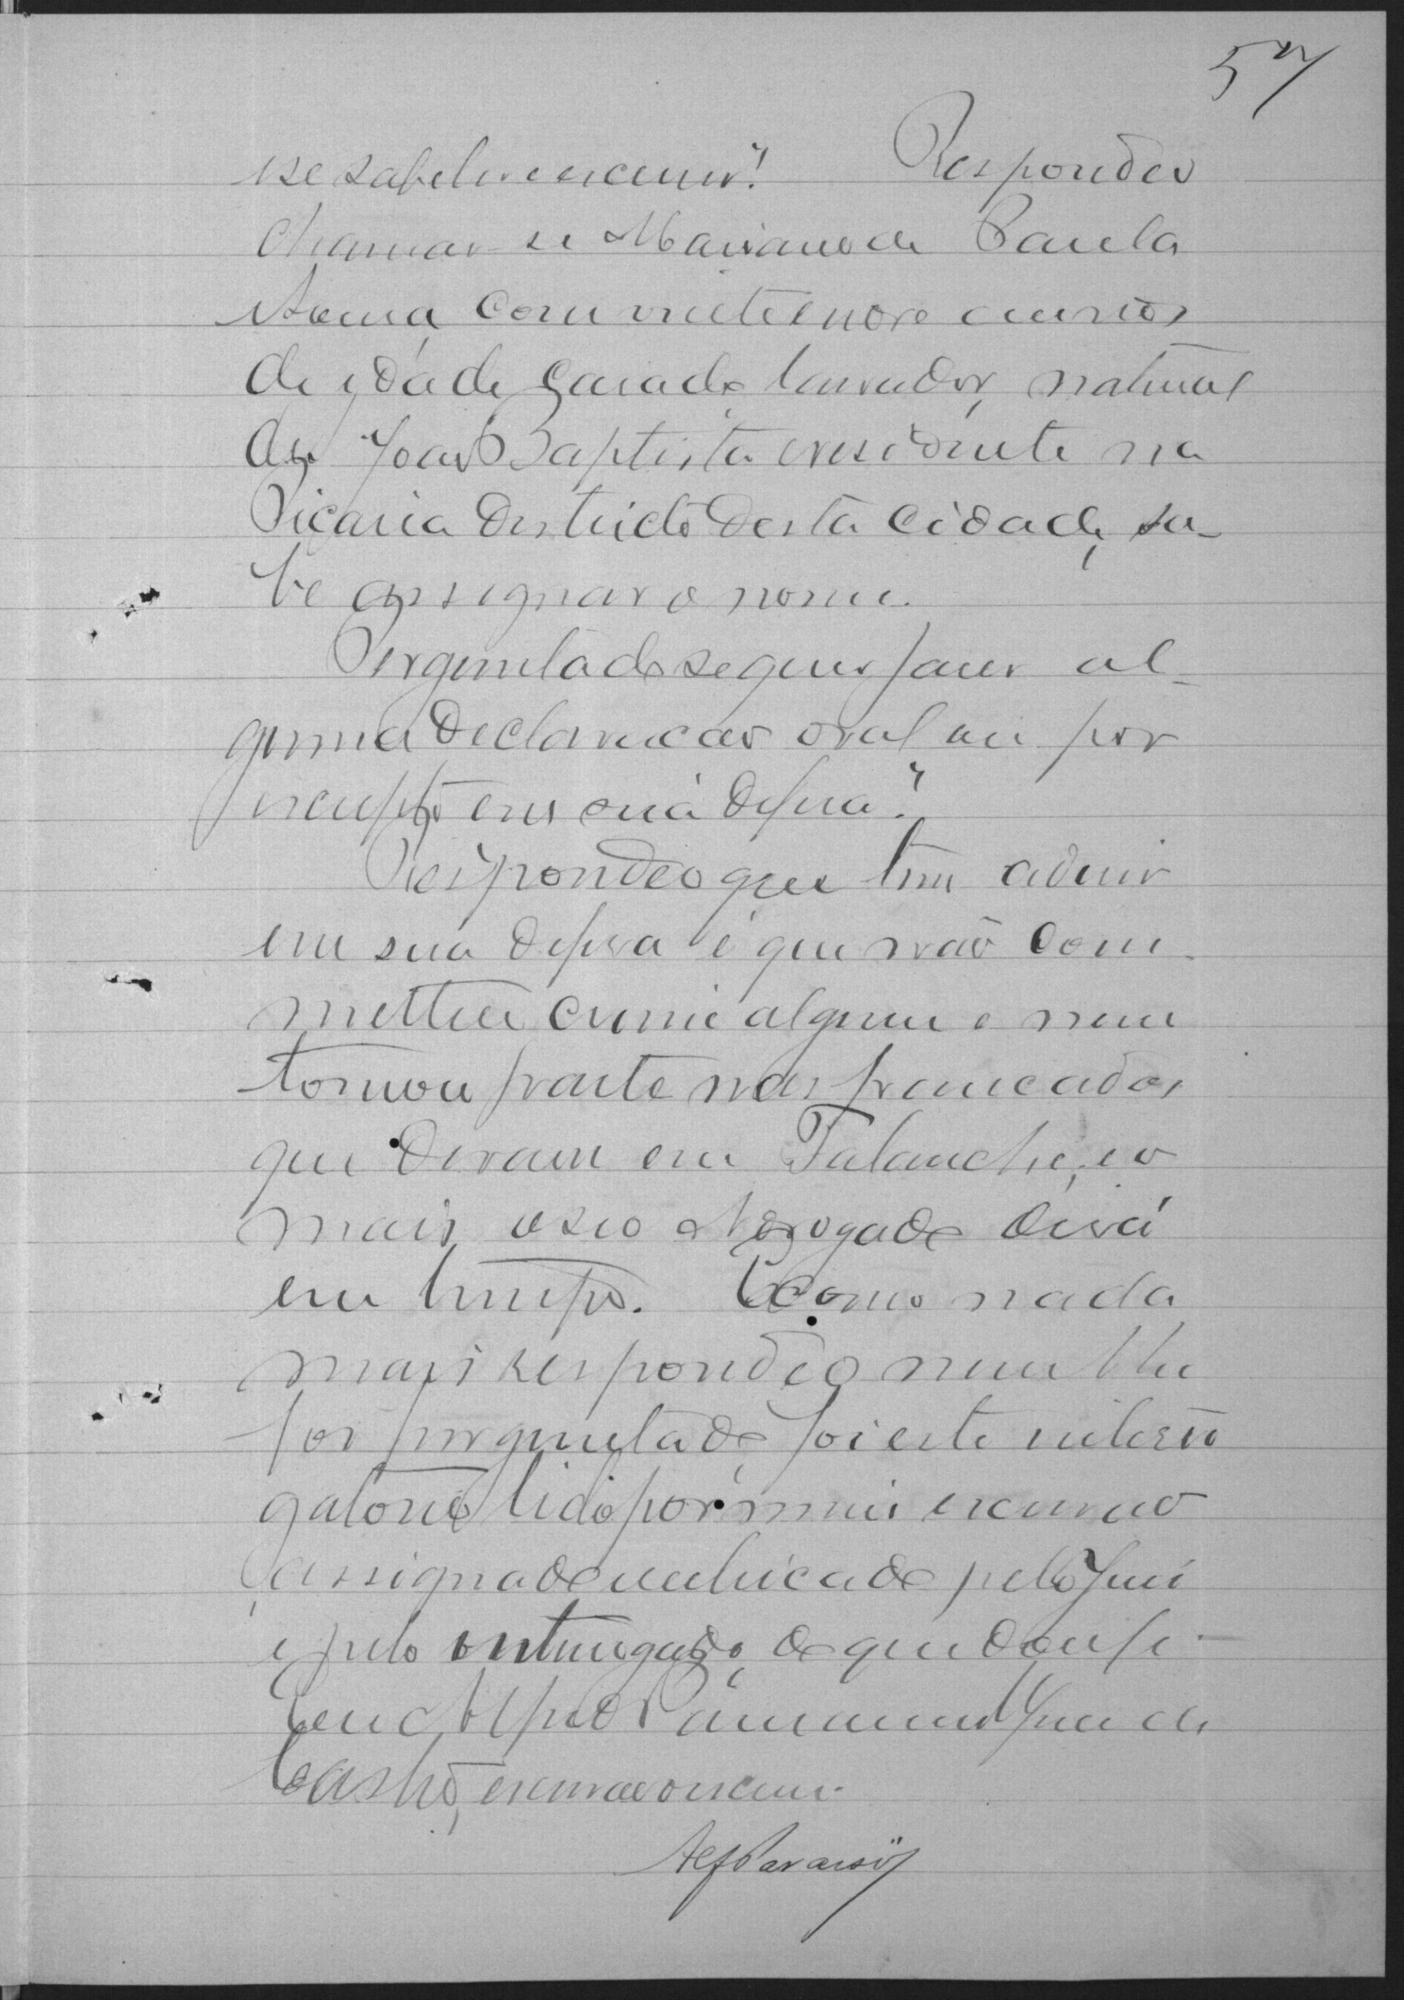 57
e se sabe ler e escrever? Respondeo
chamar-se Marianno de Paula
com vinte e nove annos
de idade, casado, lavrador, natural
de João Baptista e residente na
Piçarra districto desta cidade, sa-
be assignar o nome.
Perguntado se quer fazer al-
guma declaracão oral ou por
escripto em sua defesa?
Respondeo que tem a dizer
em sua defesa é que não com-
metteu crime algum e nem
tomou parte nas pancadas
que deram em Talanche, e o
mais o seo Advogado dirá
em tempo. E como nada
mais respondeo nem lhe
foi perguntado, foi este interro
gatorio lido por mim escrivão
assignado e rubricado pelo Juiz
e pelo interrogado, do que dou fé.
Eu
Castro, escrivão o escrevi.